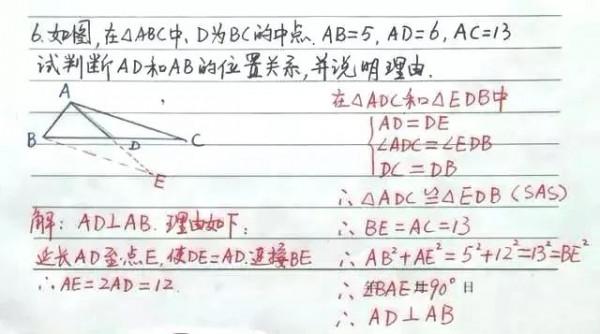 6.如图,在△ABC中、D为BC的中点. AB=5, AD=6, AC=13
试判断AD和AB的位置关系,并说明理由.
A
B
D
C
E
解: AD⊥AB. 理由如下:
延长AD至点E,使DE=AD.连接BE
∴AE=2AD=12.
在△ADC和△EDB中
AD=DE
∠ADC=∠EDB
DC=DB
∴△ADC≌△EDB(SAS)
∴BE=AC=13
∴AB²+AE²=5²+12²=13²=BE²
∴∠BAE=90°
∴AD⊥AB